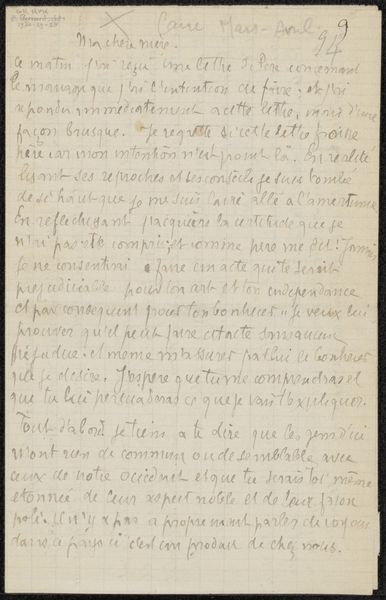 Caire Mars-Avril
9
94
Ma chère mère.
ce matin j'ai reçu une lettre de Père concernant
le mariage que j'ai l'intention de faire, et j'ai
répondu immédiatement a cette lettre, mais d'une
façon brusque. Je regrette si cette lettre froisse
père car mon intention n'est point là. En réalité
lisant ses reproches et ses conseils je suis tombé
de si haut que je me suis laissé allé a l'amertume
En reflechissant j'acquière la certitude que je
n'ai pas été compris, et comme père me dit: Jamais
je ne consentirai a faire un acte qui te serait
prejudiciable pour ton art et ton independance
et par consequent pour ton bonheur" Je veux lui
prouver qu'il peut faire cet acte sans aucun
préjudice, et même m'assurer par lui le bonheur
que je desire. J'espère que tu me comprendras et
que tu lui persuaderas ce que je vais t'expliquer.
Tout d'abord je tiens a te dire que les gens d'ici
n'ont rien de commun ou de semblable avec
ceux de notre occident et que tu serais toi même
etonnée de leur aspect noble et de leur façon
polie. Il n'y a pas a proprement parler de voyou
dans ce pays ci c'est un produit de chez nous.